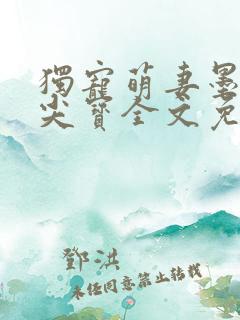 獨寵萌妻墨
尖寶全文免
鄧洪
未任同意禁止转载